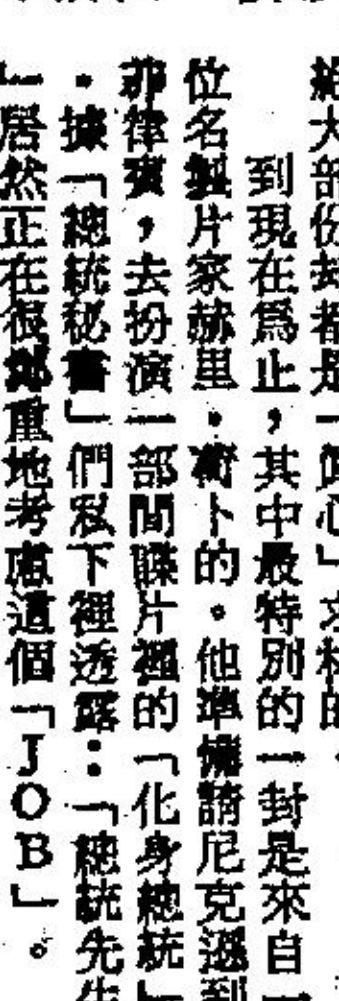 大部份都是
到現在爲止，其中最特別的一封是來自一
位名製片家赫里・卜的。他準備請尼克遜到
菲律賓，去扮演一部間諜片裡的「化身總統」
・據「總統秘書」們私下裡透露：「總統先生
」居然正在很鄭重地考慮這個「JOB」。